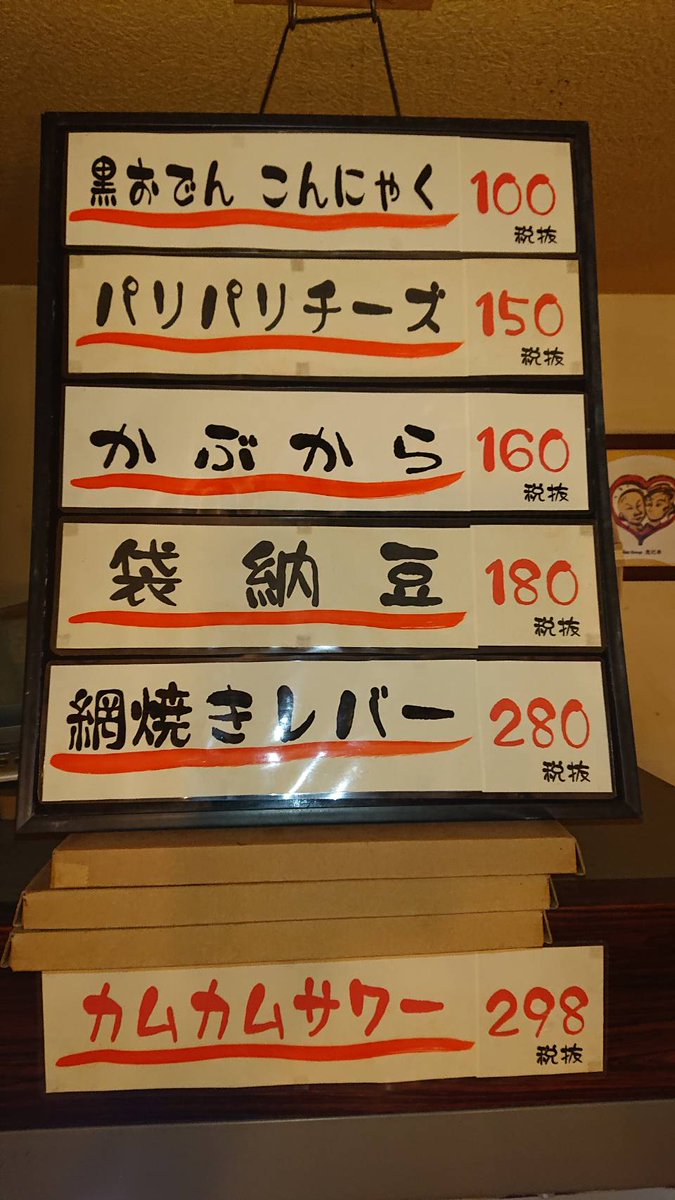 黒おでん こんにゃく 100
税抜
パリパリチーズ 150
税抜
かぶから 160
税抜
袋納豆 180
税抜
網焼きレバー 280
税抜
カムカムサワー 298
税抜